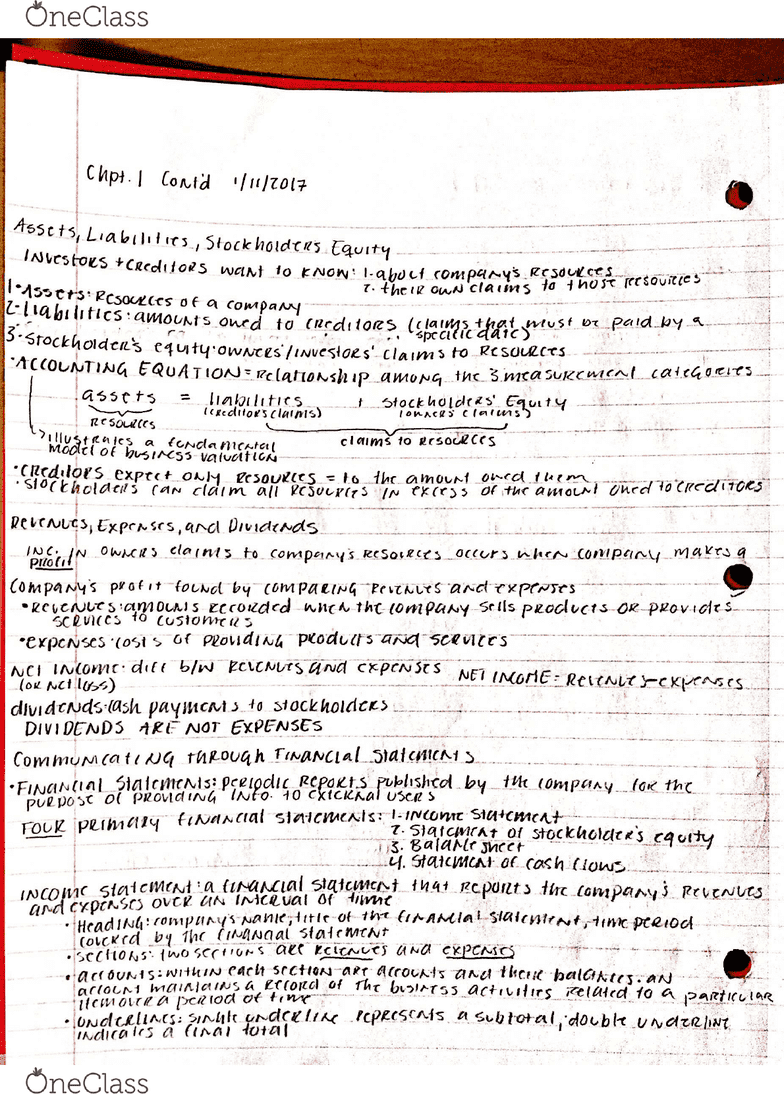 OneClass
Chpt. 1 Cont'd 1/11/2017
Assets, Liabilities, Stockholders Equity
Investors + creditors want to know: 1. about company's resources
2. their own claims to those resources
1. Assets: Resources of a company
2. Liabilities: amounts owed to creditors (claims that must be paid by a
specific date)
3. Stockholder's equity: owners'/investors' claims to resources
• ACCOUNTING EQUATION = relationship among the 3 measurement categories
assets = liabilities + stockholders' Equity
(creditors claims) (owners claims)
resources
claims to resources
illustrates a fundamental
model of business valuation
• creditors expect only resources = to the amount owed them
• stockholders can claim all resources in excess of the amount owed to creditors
Revenues, Expenses, and Dividends
INC. IN owners claims to company's resources occurs when company makes a
profit
Company's profit found by comparing revenues and expenses
• Revenues: amounts recorded when the company sells products or provides
services to customers
• expenses: costs of providing products and services
Net income: diff b/w revenues and expenses NET INCOME = Revenues - expenses
(or net loss)
dividends: cash payments to stockholders
DIVIDENDS ARE NOT EXPENSES
Communicating through Financial Statements
• Financial Statements: periodic reports published by the company for the
purpose of providing info. to external users
FOUR primary financial statements: 1. income statement
2. Statement of stockholder's equity
3. Balance sheet
4. Statement of cash flows
Income statement: a financial statement that reports the company's revenues
and expenses over an interval of time
• Heading: company's name, title of the financial statement, time period
covered by the financial statement
• sections: two sections are revenues and expenses
• accounts: within each section are accounts and their balances. an
account maintains a record of the business activities related to a particular
item over a period of time
• underlines: single underline represents a subtotal; double underline
indicates a final total
OneClass